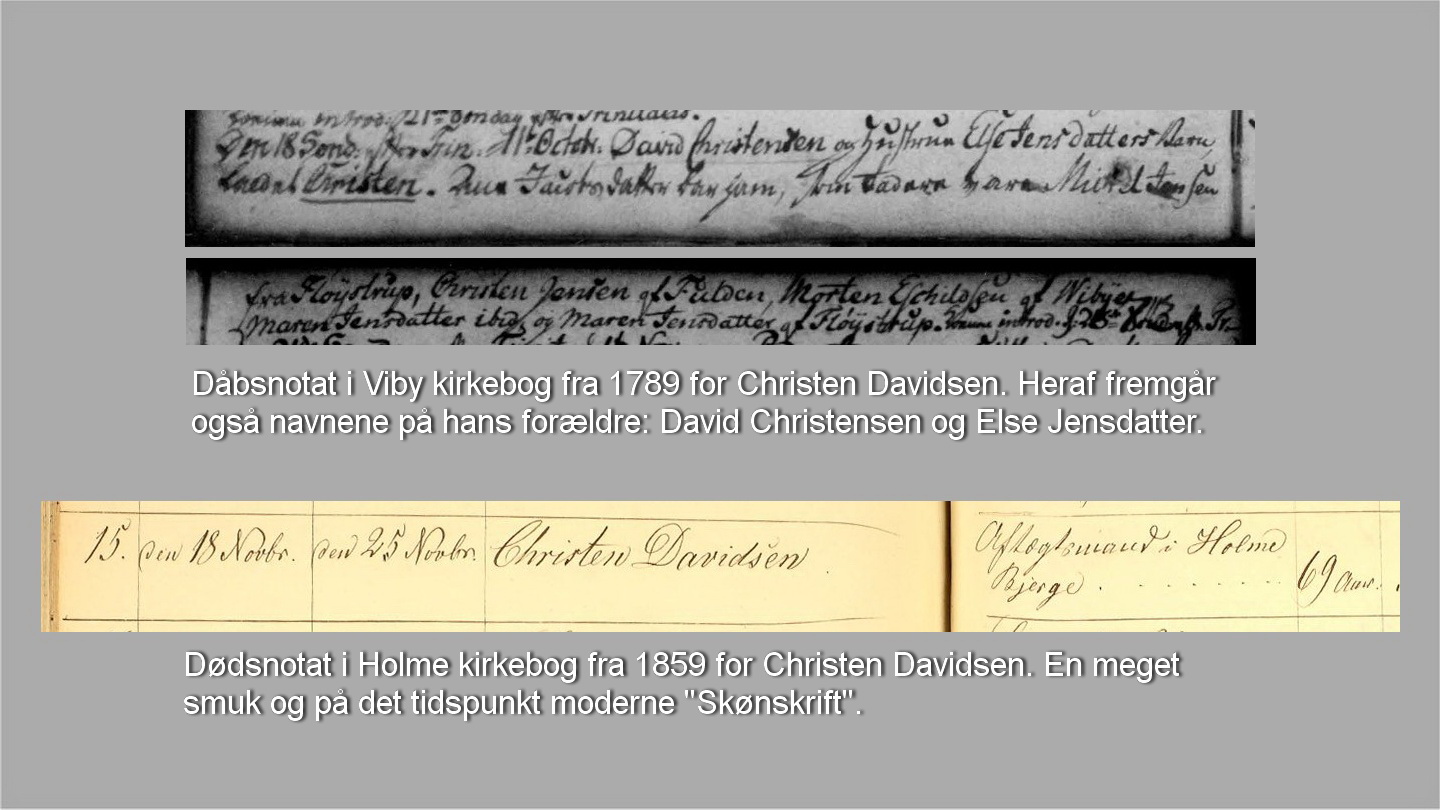 introd: 21de Sonday efter Trinitatis.
Den 18 Sond: efter Trin. 11te Octobr. David Christensen og Hustrue Else Jensdatters Barn,
kaldet Christen. Ane Jacobsdatter bar ham, som faddere vare Michel Jensen
fra Fløÿstrup, Christen Jensen af Fulden, Morten Eschildsen af Wibÿe,
Maren Jensdatter ibid, og Maren Jensdatter af Fløÿstrup. introd.
Dåbsnotat i Viby kirkebog fra 1789 for Christen Davidsen. Heraf fremgår
også navnene på hans forældre: David Christensen og Else Jensdatter.
15. den 18 Novbr. den 25 Novbr. Christen Davidsen Aftægtsmand i Holme
Bjerge . . . . . . . . 69 Aar.
Dødsnotat i Holme kirkebog fra 1859 for Christen Davidsen. En meget
smuk og på det tidspunkt moderne "Skønskrift".